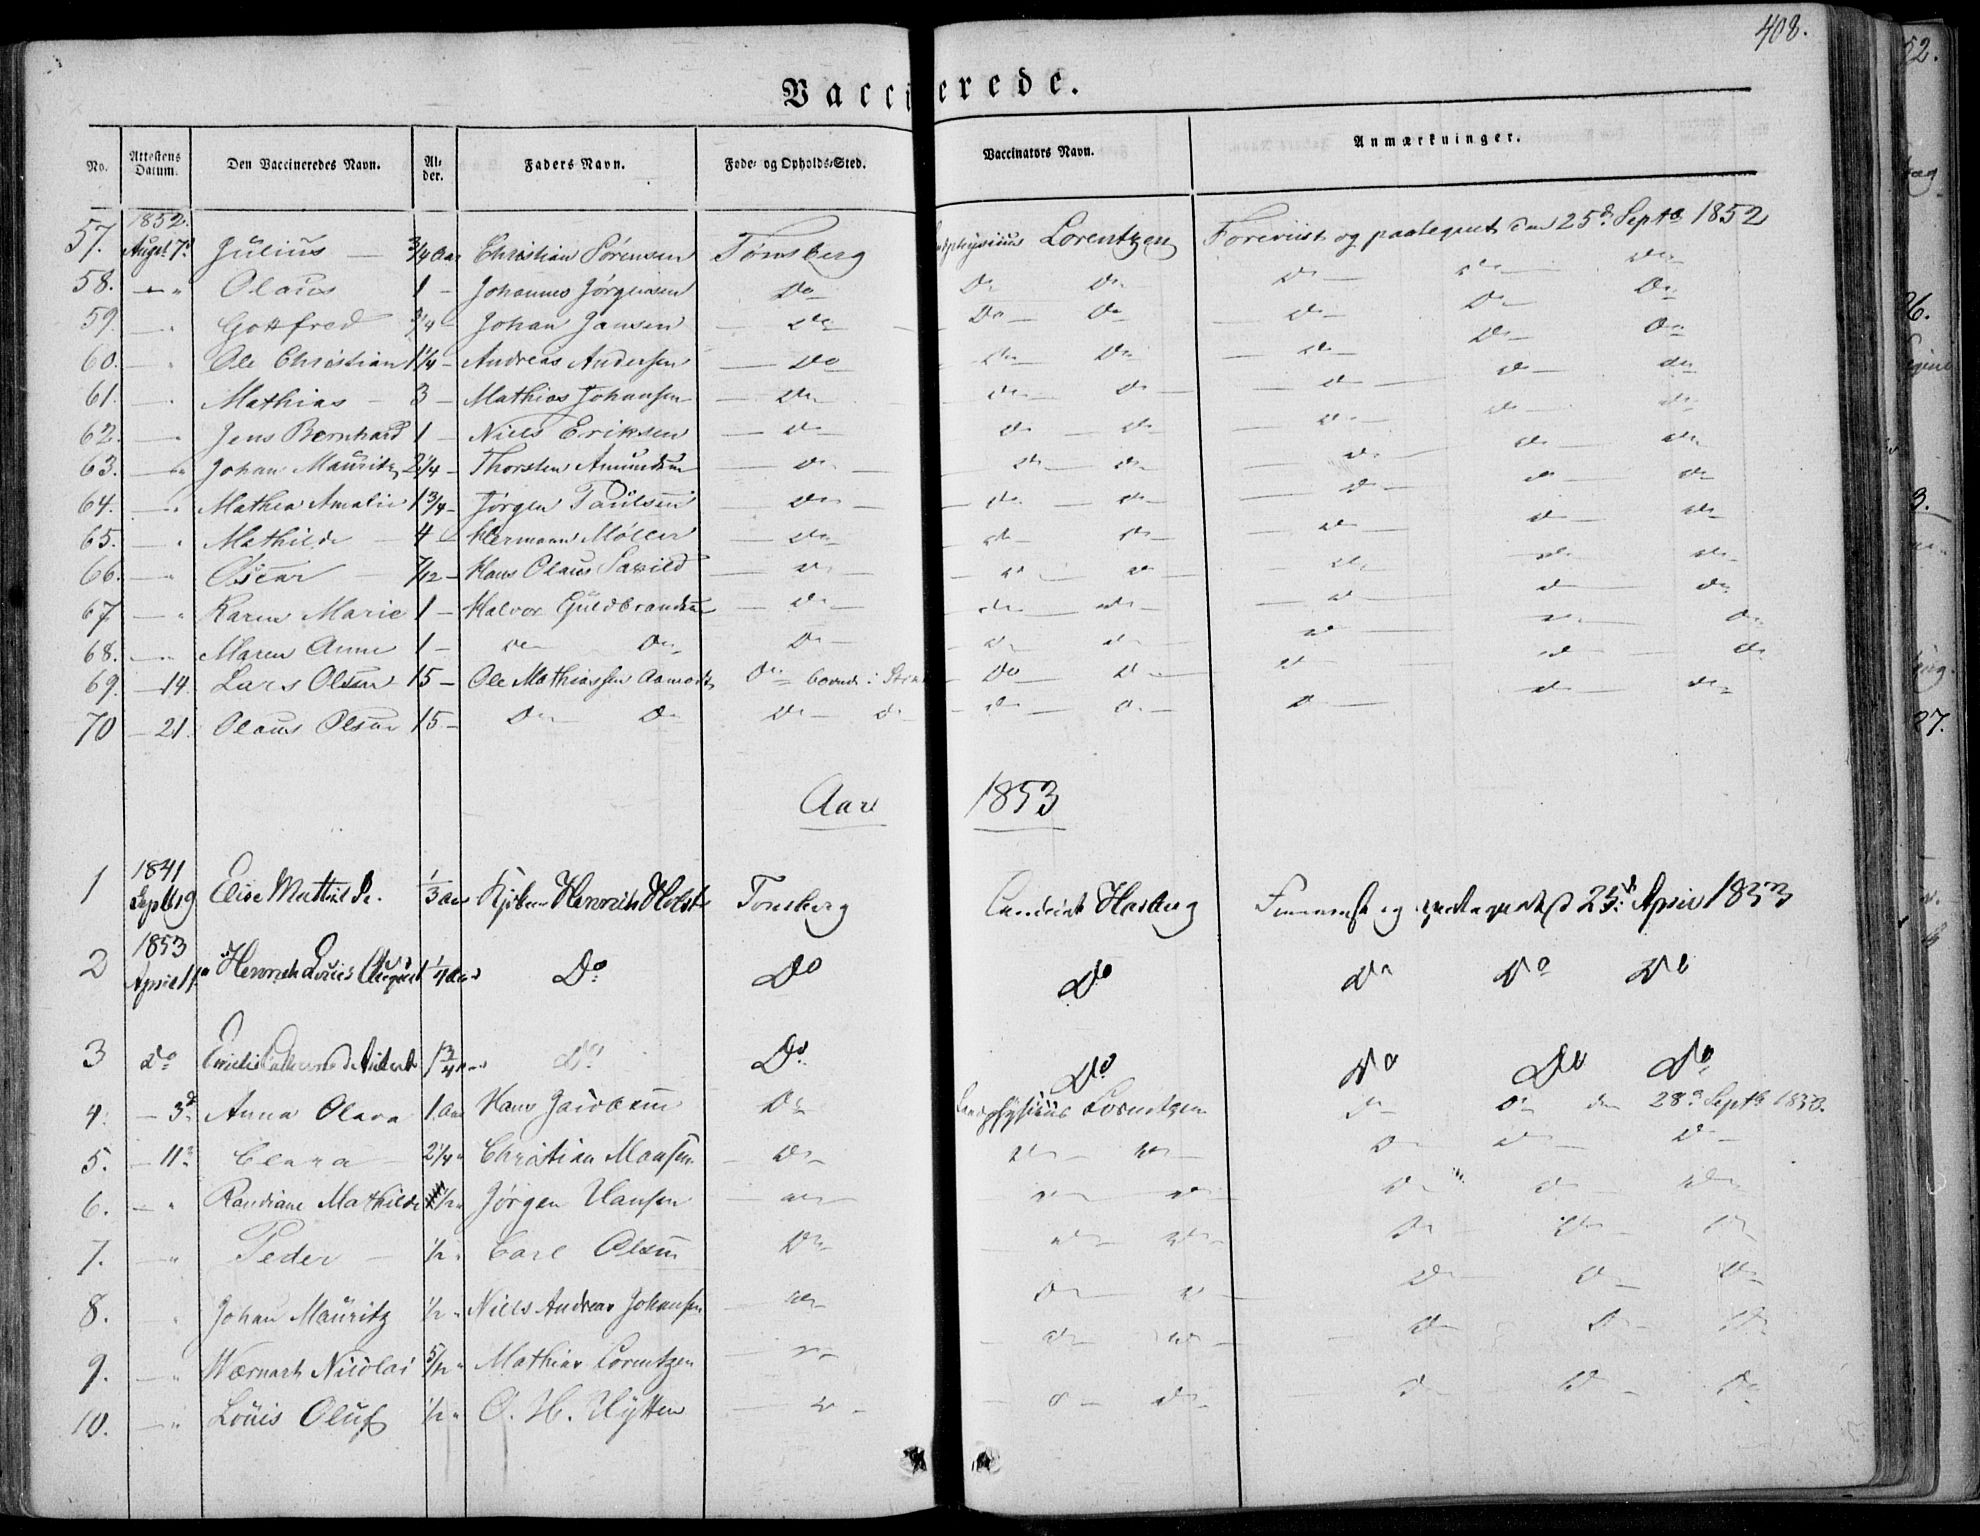 408.
Vaccinerede.
No. Attestens Datum. Den Vaccineredes Navn. Alder. Faders Navn. Føde- og Opholds-Sted. Vaccinators Navn. Anmærkninger.
1852.
57. Augst 7d Julius — 3/4 Aar Christian Sørensen Tønsberg Lorentzen Foreviist og paategnet den 25d Septb 1852
58. — " Olaus 1 — Johannes Jørgensen Do Do Do Do Do Do
59. — " Gottfred 3/4 — Johan Jansen — Do — Do — Do Do Do Do
60. — " Ole Christian 1 1/4 — Andreas Andersen — Do Do Do — Do Do Do
61. — " Mathias — 3 — Mathias Johansen — Do Do Do — Do — Do Do
62. — " Jens Bernhard 1 — Niels Eriksen — Do — Do — Do — Do — Do — Do
63. — " Johan Mauritz 2 1/4 — Thorsten Amundsen — Do — Do — Do — Do — Do Do
64. — " Mathea Amalie 1 3/4 — Jørgen Paulsen — Do — Do — Do — Do — Do Do
65. — " Mathilde — 4 — Hermann Møller — Do — Do Do — Do — Do — Do
66. — " Oscar — 7/12 — Hans Olaus Saxild — Do — Do — Do — Do Do Do
67 — " Karen Marie 1 — Halvor Guldbrandsen — Do — Do — Do — Do — Do Do
68. — " Maren Anne 1 — Do Do Do — Do Do — Do — Do — Do
69. — 14. Lars Olsen 15 — Ole Mathiassen Aamodt Do boende i Do Do — Do — Do — Do
70 — 21. Olaus Olsen 15 — Do Do Do — Do — Do — Do — Do — Do — Do
Aar 1853
1841
1 Septb 19 Elise Mathilde. 1/3 Aar Henrich Holst Tønsberg Candidat og 25d April 1853
1853
2 April 1 Henrich Louis August 1/4 Aar Do Do Do Do Do Do
3 Do 1 3/4 Do Do Do Do Do Do
4. — 3d Anna Olava 1 Aar Hans Jacobsen Do Landphysicus Lorentzen Do Do den 28d Septb 1853.
5. — 11d Clara — 2 1/4 " Christian Monsen — Do — Do — Do — Do Do — Do —
6. — " Randiane Mathilde 1/2 " Jørgen Hansen — Do — Do — Do — Do Do — Do
7. — " Peder — 1/2 " Carl Olsen Do — Do — Do — Do — Do — Do
8. " Johan Mauritz 1/2 " Niels Andreas Johansen — Do Do — Do — Do Do — Do
9. — " Wærnart Nicolai 5/12 " Mathias Lorentzen — Do — Do — Do — Do Do — Do
10. — " Louis Oluf 1/2 " O. H. Hytten — Do — Do — Do — Do Do — Do